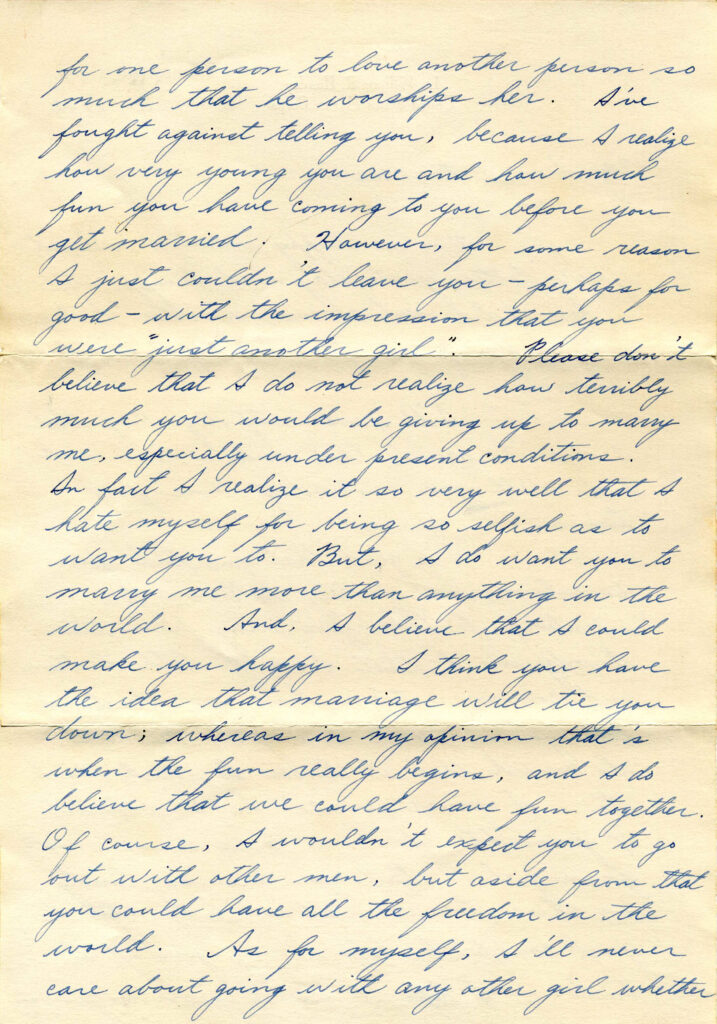 for one person to love another person so
much that he worships her. I've
fought against telling you, because I realize
how very young you are and how much
fun you have coming to you before you
get married. However, for some reason
I just couldn't leave you – perhaps for
good – with the impression that you
were "just another girl". Please don't
believe that I do not realize how terribly
much you would be giving up to marry
me, especially under present conditions.
In fact I realize it so very well that I
hate myself for being so selfish as to
want you to. But, I do want you to
marry me more than anything in the
world. And, I believe that I could
make you happy. I think you have
the idea that marriage will tie you
down; whereas in my opinion that's
when the fun really begins, and I do
believe that we could have fun together.
Of course, I wouldn't expect you to go
out with other men, but aside from that
you could have all the freedom in the
world. As for myself, I'll never
care about going with any other girl whether